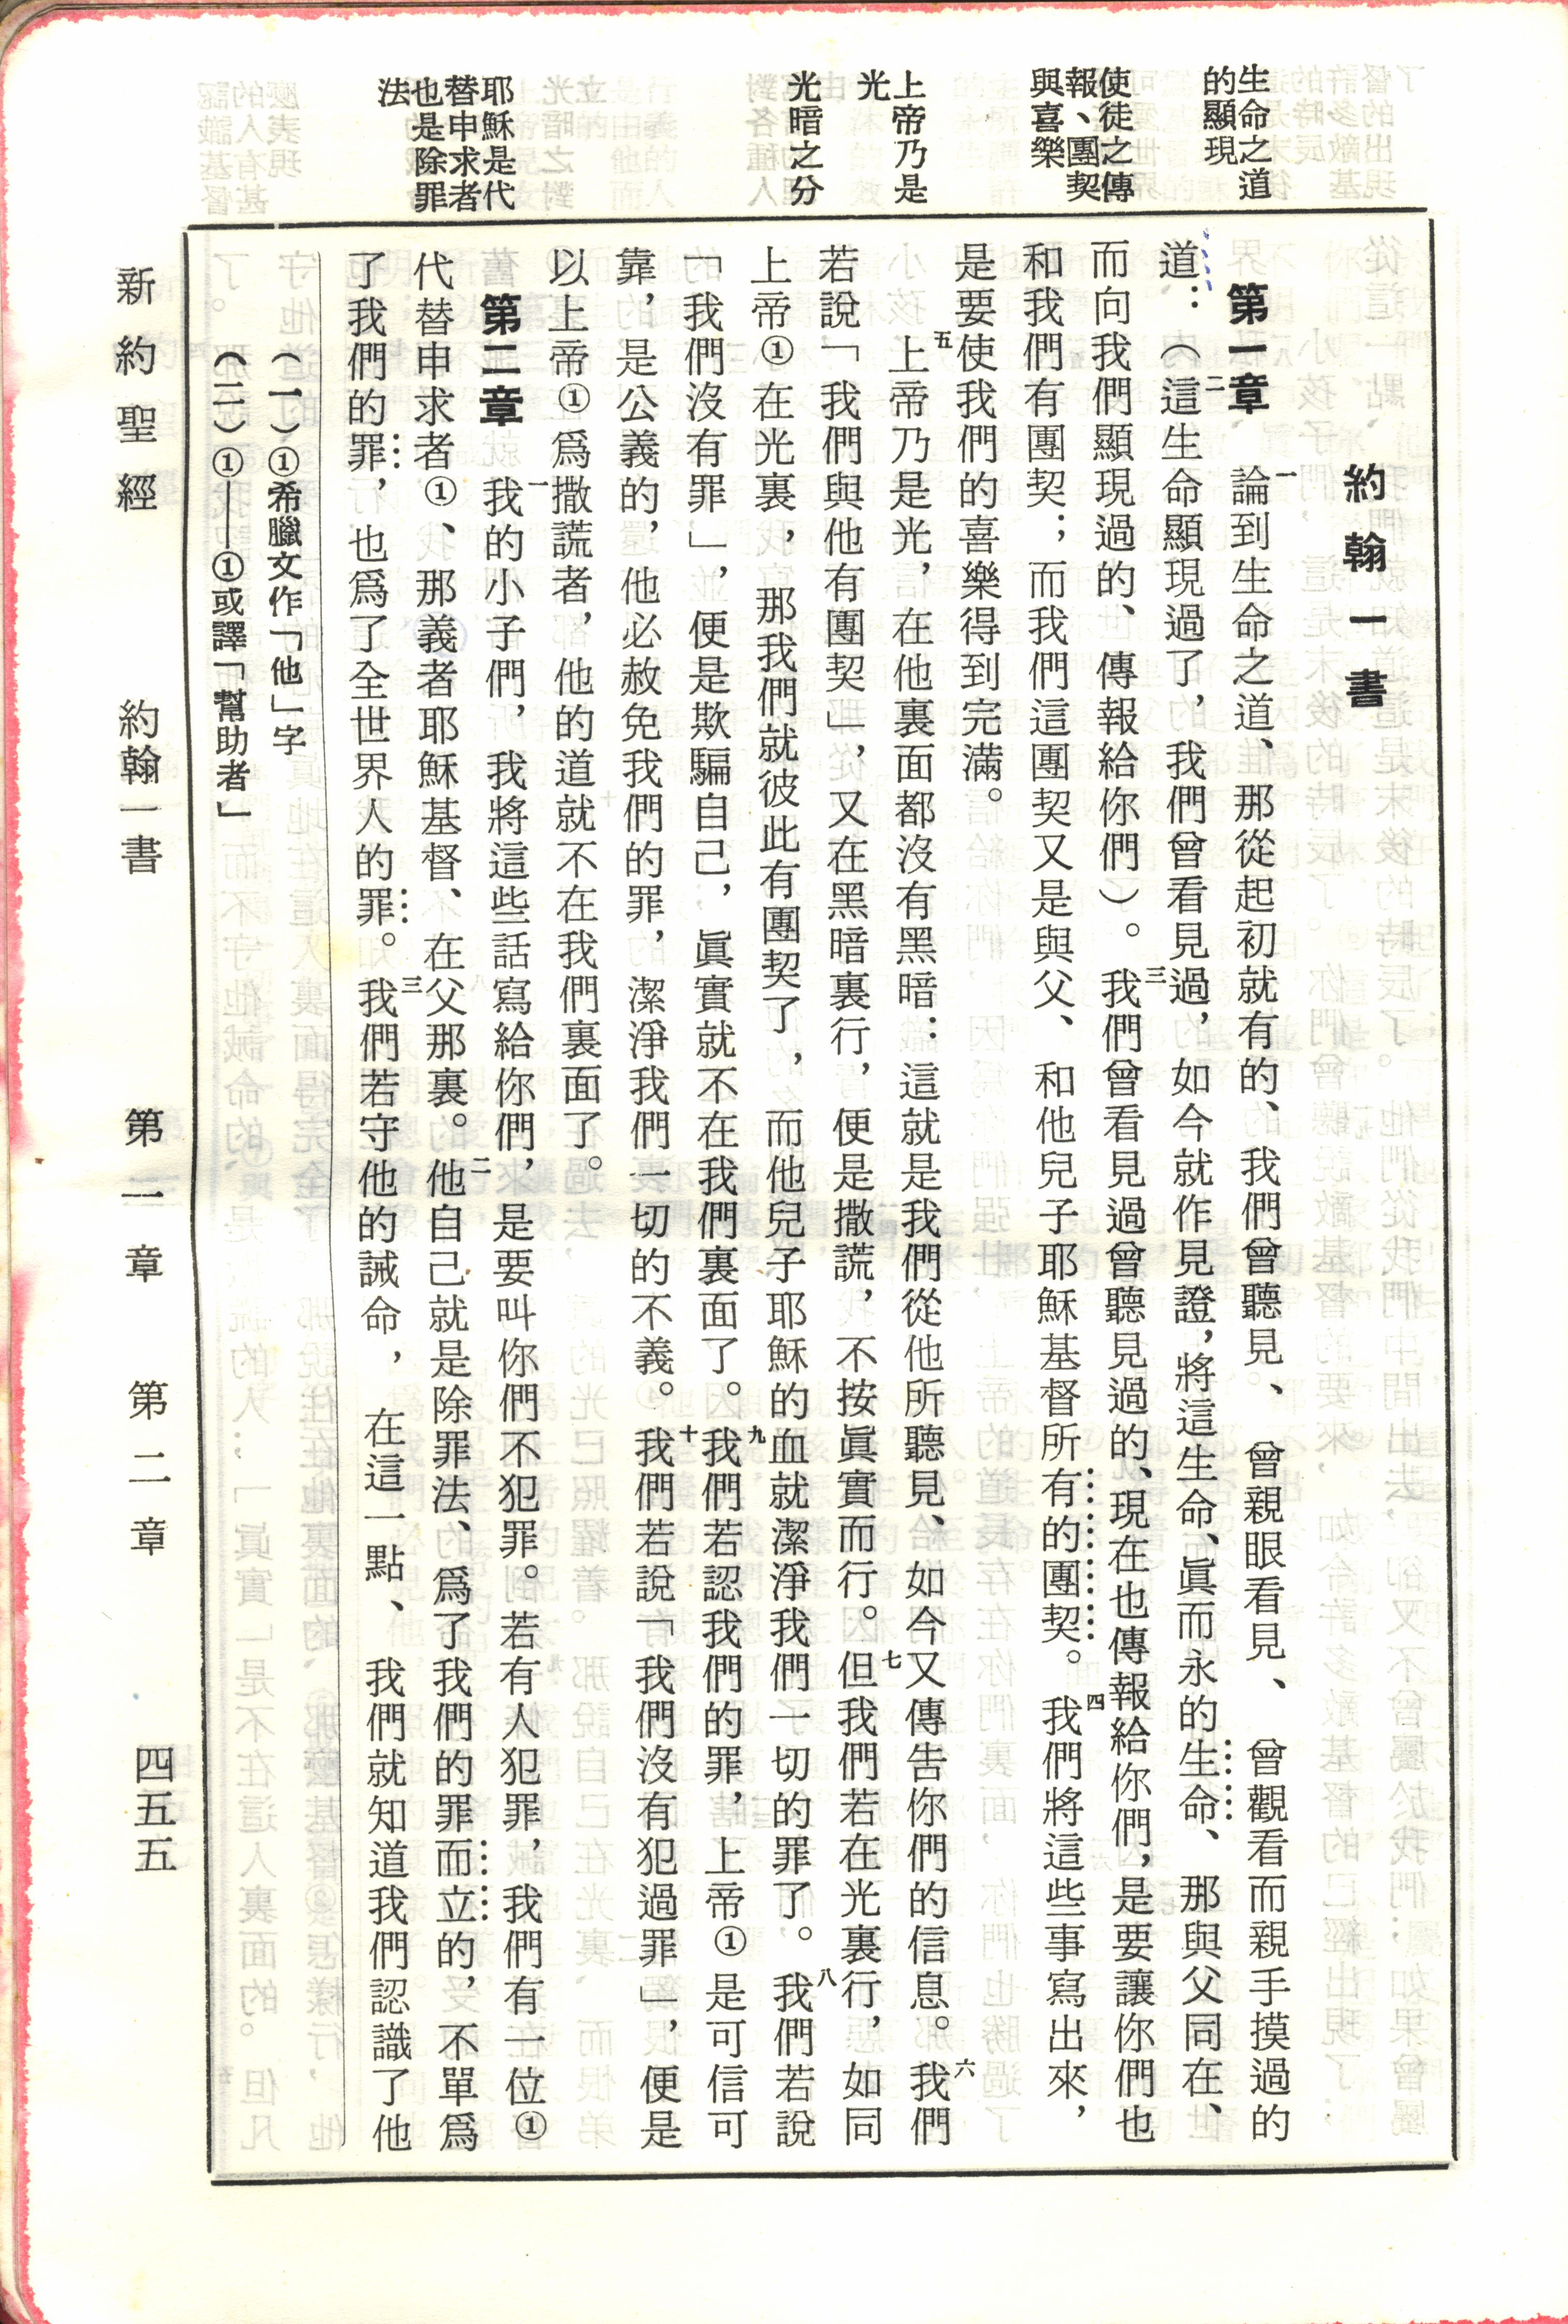 生命之道
的顯現
使徒之傳
報、團契
與喜樂
上帝乃是
光
光暗之分
耶穌是代
替申求者
也是除罪
法
約翰一書
第一章 一論到生命之道、那從起初就有的、我們曾聽見、曾親眼看見、曾觀看而親手摸過的
道：（二這生命顯現過了，我們曾看見過，如今就作見證，將這生命、眞而永的生命、那與父同在、
而向我們顯現過的、傳報給你們）。三我們曾看見過曾聽見過的、現在也傳報給你們，是要讓你們也
和我們有團契；而我們這團契又是與父、和他兒子耶穌基督所有的團契。四我們將這些事寫出來，
是要使我們的喜樂得到完滿。
五上帝乃是光，在他裏面都沒有黑暗：這就是我們從他所聽見、如今又傳告你們的信息。六我們
若說「我們與他有團契」，又在黑暗裏行，便是撒謊，不按眞實而行。七但我們若在光裏行，如同
上帝①在光裏，那我們就彼此有團契了，而他兒子耶穌的血就潔淨我們一切的罪了。八我們若說
「我們沒有罪」，便是欺騙自己，眞實就不在我們裏面了。九我們若認我們的罪，上帝①是可信可
靠，是公義的，他必赦免我們的罪，潔淨我們一切的不義。十我們若說「我們沒有犯過罪」，便是
以上帝①爲撒謊者，他的道就不在我們裏面了。
第二章 一我的小子們，我將這些話寫給你們，是要叫你們不犯罪。若有人犯罪，我們有一位①
代替申求者①、那義者耶穌基督、在父那裏。二他自己就是除罪法、爲了我們的罪而立的，不單爲
了我們的罪，也爲了全世界人的罪。三我們若守他的誡命，在這一點、我們就知道我們認識了他
（一）①希臘文作「他」字
（二）①—①或譯「幫助者」
新約聖經 約翰一書 第一章 第二章 四五五